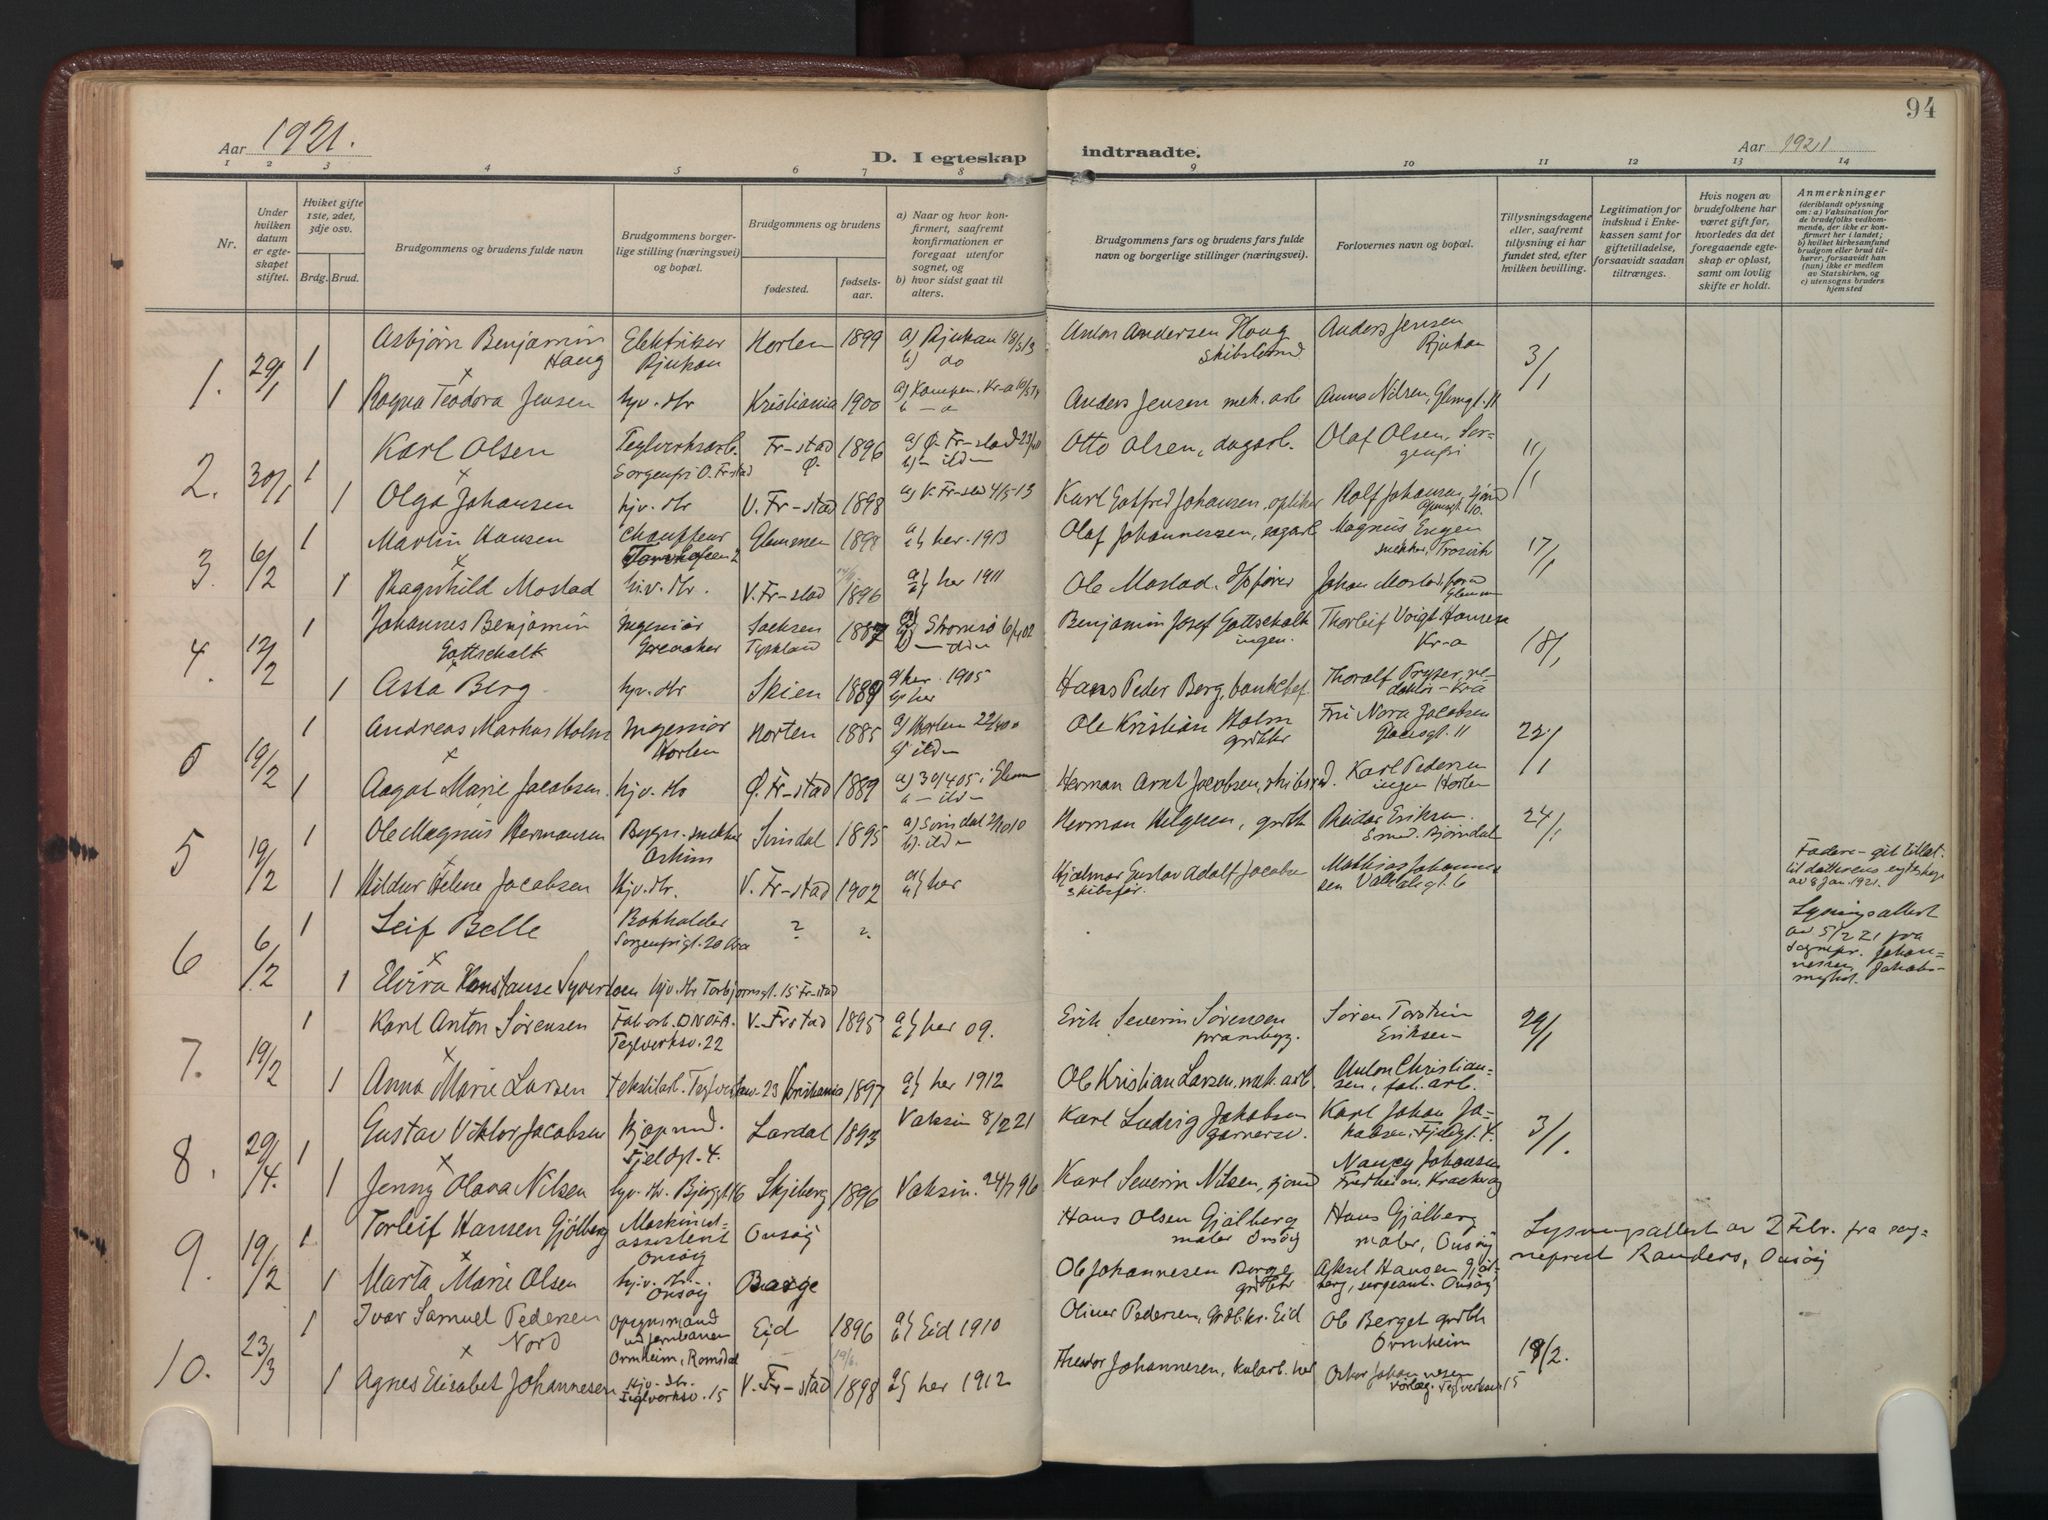 94
Aar 1921.
D. I egteskap indtraadte.
Aar 1921
1 2 3 4 5 6 7 8 9 10 11 12 13 14
Nr.
Under hvilken datum er egteskapet stiftet.
Hviket gifte 1ste, 2det, 3dje osv.
Brdg. Brud.
Brudgommens og brudens fulde navn
Brudgommens borgerlige stilling (næringsvei) og bopæl.
Brudgommens og brudens
fødested.
fødselsaar.
a) Naar og hvor konfirmert, saafremt konfirmationen er foregaat utenfor sognet, og
b) hvor sidst gaat til alters.
Brudgommens fars og brudens fars fulde navn og borgerlige stillinger (næringsvei).
Forlovernes navn og bopæl.
Tillysningsdagene eller, saafremt tillysning ei har fundet sted, efter hvilken bevilling.
Legitimation for indskud i Enkekassen samt for giftetilladelse, forsaavidt saadan tiltrænges.
Hvis nogen av brudefolkene har været gift før, hvorledes da det foregaaende egteskap er opløst, samt om lovlig skifte er holdt.
Anmerkninger
(deriblandt oplysning om: a) Vaksination for de brudefolks vedkommende, der ikke er konfirmert her i landet; b) hvilket kirkesamfund brudgom eller brud tilhører, forsaavidt han (hun) ikke er medlem av Statskirken, og c) utensogns bruders hjemsted
1. 29/1 1 Asbjørn Benjamin Haug Elektriker Rjukan Horten 1899 a) Rjukan 18/5 13 b) do Anton Andersen Haug Anders Jensen Rjukan 3/1
1 Ragna Teodora Jensen hjv. dtr Kristiania 1900 a) Kampen, Kr-a Anders Jensen mek. arb Anna Nilsen, Glemgt. 11
2. 30/1 1 Karl Olsen Teglverksarb. Sorgenfri O. Fr stad Fr-stad Ø. 1896 a) Ø. Fr-stad b) - ildn Otto Olsen, dagarb. Olaf Olsen, Sorgenfri 11/1
1 Olga Johansen hjv. dtr V. Fr-stad 1898 a) V. Fr-stad 4/5-13 Karl Gotfred Johansen, optiker Rolf Johansen,
3. 6/2 1 Martin Hansen Chauffeur Glemmen 1898 a b} her. 1913 Olaf Johannessen, sagarb Magnus Engen snekker, Trosvik 17/1
1 Ragnhild Mostad hjv. dtr. V. Fr-stad 1896 a b} her 1911 Ole Mostad. Johan Mostad, Glemm
4. 12/2 1 Johannes Benjamin Gottschalk Ingeniør Greaaker Sachsen Tyskland 1887 Strømsø 6/4 02 Benjamin Josef Gottschalk ingen. Thorleif Voigt Hansen Kr-a 18/1
1 Asta Berg hjv. dtr Skien 1889 a) her. 1905 b) her Hans Peder Berg, bankchef. Thoralf Pryser, redaktør - Kra
5 19/2 1 Andreas Markus Holm Ingeniør Horten Horten 1885 a) Horten b) ildn Ole Kristian Holm grdbkr Fru Nora Jacobsen 22/1
1 Aagot Marie Jacobsen. hjv. Ø. Fr-stad 1889 Herman Arnt Jacobsen, Karl Pedersen ingen Horten
5 19/2 1 Ole Magnus Hermansen Bygn. snekker Askim Svindal 1895 a) Svindal b). ildn Herman Helgesen, grdb Reidar Eriksen. Smed. Bjørndal 24/1
1 Hildur Helene Jacobsen Hjv. dtr. V. Fr-stad 1902 a b} her Hjalmar Gustav Adolf Jacobsen skibsfør. Mathias Johannessen Valhalsgt. 6 Faderen git tillat. til datterens egteskap av 8 Jan 1921.
6 6/2 1 Leif Belle Bokholder Sorgenfrigt. 20 ? ? Lysningsattest av 5/2 21 fra sognepr. Johannessen, Jakobs-
1 Elvira Konstanse Syversen hjv. dtr Torbjørnsgt. 15 Fr-stad
7. 19/2 1 Karl Anton Sørensen Fab. arb. Teglverksv. 22 V. Frstad 1895 a b} her 09. Erik Severin Sørensen prambyg. Søren Torstein Eriksen 29/1
1 Anna Marie Larsen tekstilarb. Kristiania 1897 a b} her 1912 Ole Kristian Larsen. mek. arb. Anton Christiansen, fab. arb.
8. 29/4. 1 Gustav Viktor Jacobsen Kjøpmd. Fjeldgt. 4. Lardal 1893 Vaksin 8/2 21 Karl Ludvig Jakobsen garversv. Karl Johan Jakobsen, Fjeldgt. 4. 3/1.
1 Jenny Olava Nilsen hjv. dtr. Bjerggt 16 Skjeberg 1896 Vaksin. 24/7 96 Karl Severin Nilsen, sjømd Nancy Johansen Fredheim, Kraakerøy
9. 19/2 1 Torleif Hansen Gjølberg Maskinist-assistent Onsøy Onsøy Hans Olsen Gjølberg maler Onsøy Hans Gjølberg maler, Onsøy Lysningsattest av 2 Febr. fra sogneprest Randers, Onsøy
1 Marta Marie Olsen hjv. dtr. Onsøy Borge Ole Johannesen Borge grdbkr Aksel Hansen Gjølberg, sergeant. Onsøy
10. 23/3 1 Ivar Samuel Pedersen Nord Opsynsmand ved jernbanen Ormheim, Romsdal Eid 1896 a b} Eid 1910 Oliver Pedersen, grdbkr. Eid Ole Berget grdbr Ormheim 18/2.
1 Agnes Elisabet Johannesen Hjv. dtr. Teglverksv. 15 V. Fr-stad 19/6. 1898 a b} her 1912 Theodor Johannesen, kularb. her Oskar Johannesen Teglverksv 15